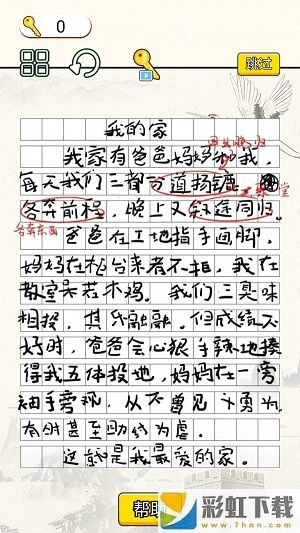 0
跳过
我的家
我家有爸爸妈妈和我，
每天我们三都分道扬镳
各奔前程，晚上又殊途同归。
各奔东西
爸爸在工地指手画脚，
妈妈在柜台来者不拒，我在
教室呆若木鸡。我们三臭味
相投，其乐融融。但成绩不
好时，爸爸会心狠手辣地揍
得我五体投地，妈妈在一旁
袖手旁观，从不曾见义勇为，
有时甚至助纣为虐。
这就是我最爱的家。
帮助
彩虹下载
www.7hon.com